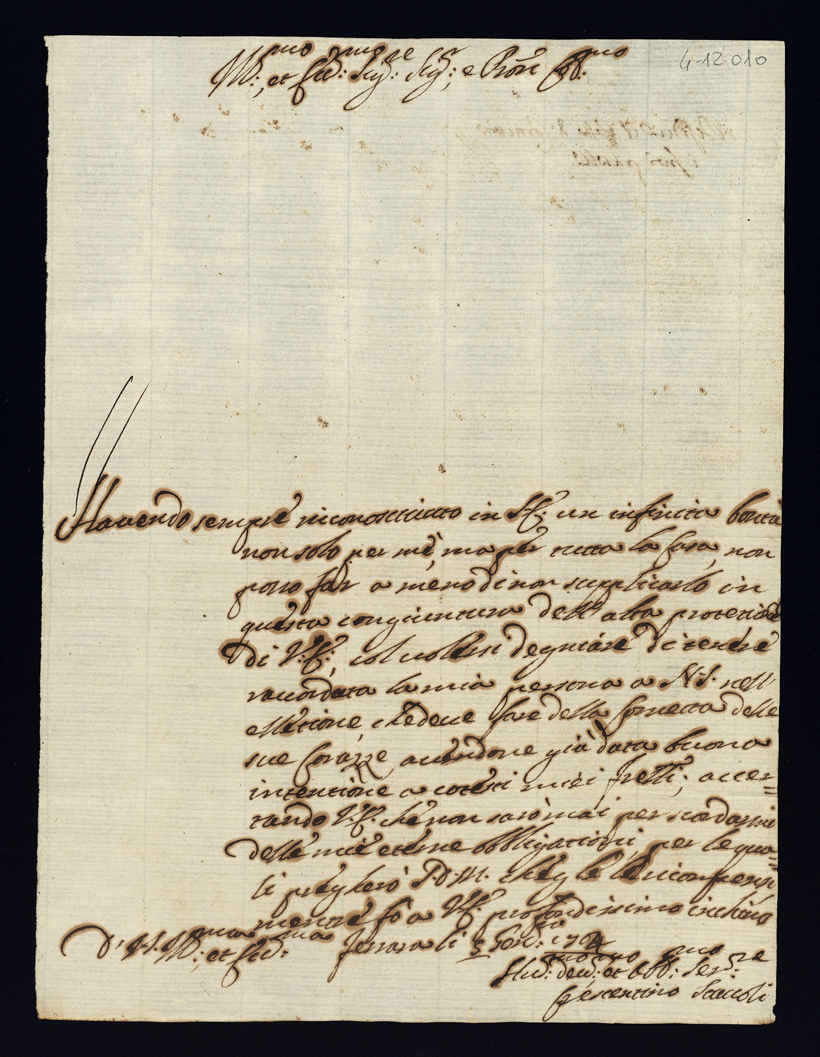 4-12-010
Ill:mo, et Ecc:mo Sig:re Sig:r, e Pron Col:mo
Hauendo sempre riconosciuto in V.E. un infinita bontà
non solo per me, ma per tutta la Casa, non
posso far a meno di non supplicarlo in
questa congiuntura dell'alta protetione
di V.E., col volersi degniare di tenere
racordata la mia persona a N.S. nell'
elletione, che deue fare della Cornetta delle
sue Corazze, auendone già data buona
intentione a cotesti miei fretti; accer=
tando V.E. che non sarò mai per scordarmi
delle mie etterne obbligationi, per le qua=
li pregherò S.D.M. che gle le ricompensi
mentre fò a V.E. profondissimo inchino
D' V.S. Ill:ma, et Ecc:ma Ferrara li 3 Gen:ro 1704
Hu:mo deu:mo et Obb:mo Ser:re
Crescentino Staccoli